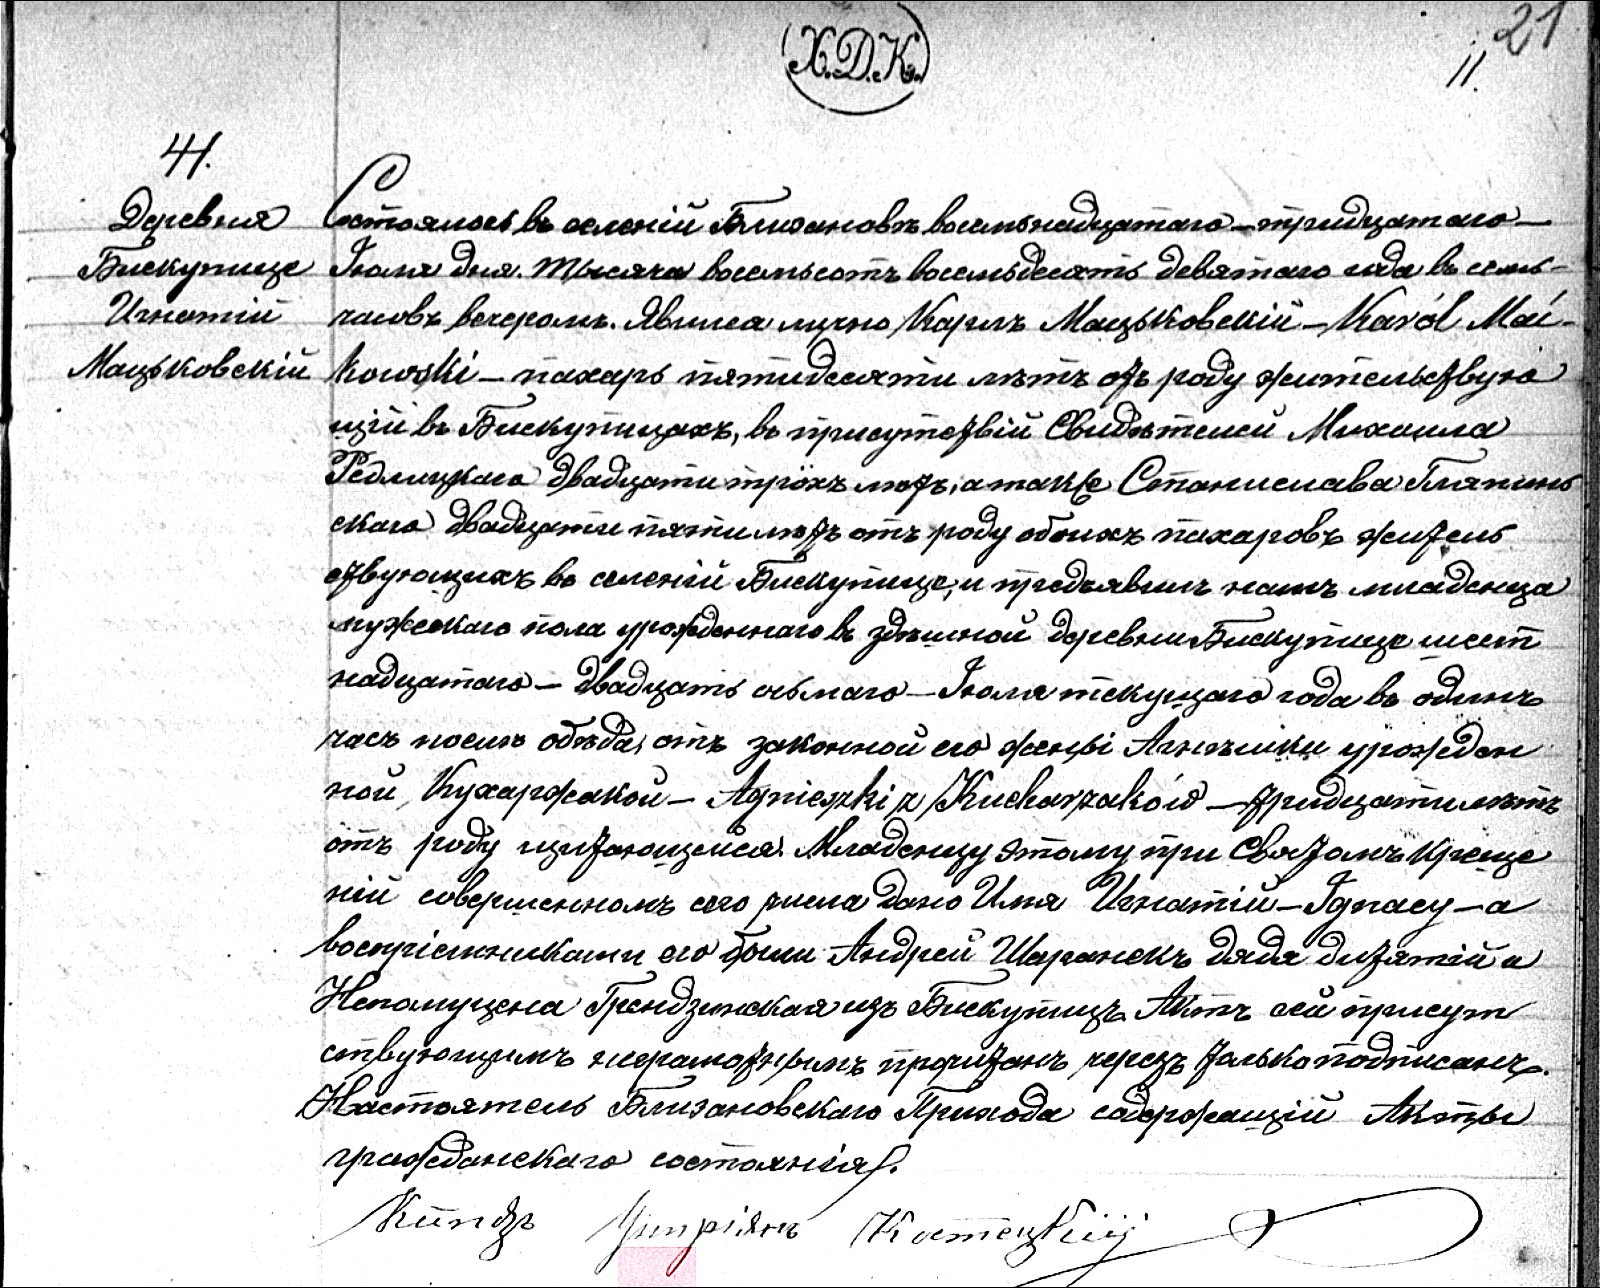 21
(Х.Д.К.)
11.
41.
Деревня
Бискупице
Игнатій
Мацьковскій
Состоялось въ селеній Близановъ восемьнадцатаго – тридцатаго –
Іюля дня. Тысяча восемьсотъ восемьдесятъ девятаго года въ семь –
часовъ вечеромъ. Явился лично Карлъ Мацьковскій – Karól Mać-
kowski – пахарь пятидесяти лѣтъ отъ роду жительствую
щій въ Бискупицахъ, въ присутствій Свидѣтелей Михаила
Редлицкаго двадцати трохъ лѣтъ, а также Станислава Гляпинь
скаго двадцати пяти лѣтъ отъ роду обоихъ пахаровъ житель
ствующихъ въ селеній Бискупице, и предъявилъ намъ младенца
мужескаго пола урожденнаго въ здѣшной деревни Бискупице шест
надцатаго – двадцать осьмаго – Іюля текущаго года въ одинъ
часъ послѣ обѣда, отъ законной его жены Агнѣшки урожден
ной Кухаржакой – Agnieszki z Kucharzaków – тридцати лѣтъ
отъ роду щитающейся. Младенцу этому при Святомъ Креще
ній совершенномъ сего числа дано Имя Игнатій – Ignacy – а
воспріемниками его были Андрей Шаранекъ дядя дитятій и
Непомуцена Грендзинская изъ Бискупицъ. Актъ сей присут
ствующимъ неграмотнымъ прочитанъ, черезъ только подписанъ.
Настоятель Близановскаго Прихода содержащій Акты
гражданскаго состоянія.
Ксіондзъ Ципріянъ Костецкій